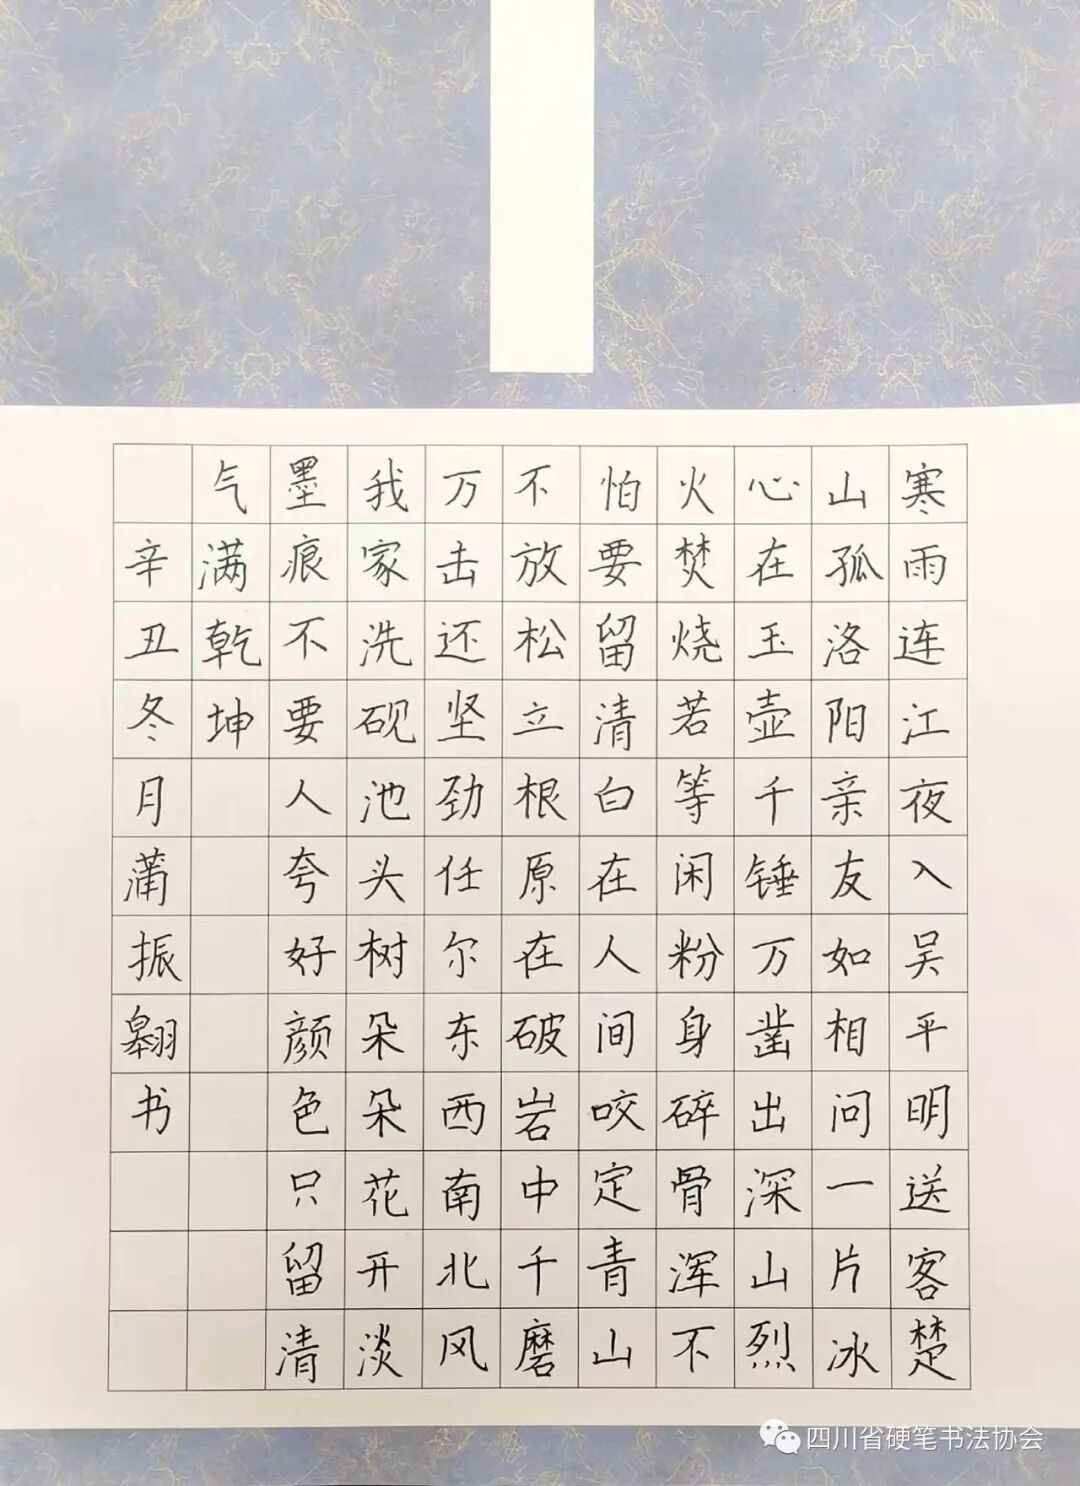 寒雨连江夜入吴平明送客楚
山孤洛阳亲友如相问一片冰
心在玉壶千锤万凿出深山烈
火焚烧若等闲粉身碎骨浑不
怕要留清白在人间咬定青山
不放松立根原在破岩中千磨
万击还坚劲任尔东西南北风
我家洗砚池头树朵朵花开淡
墨痕不要人夸好颜色只留清
气满乾坤
辛丑冬月蒲振翱书
四川省硬笔书法协会